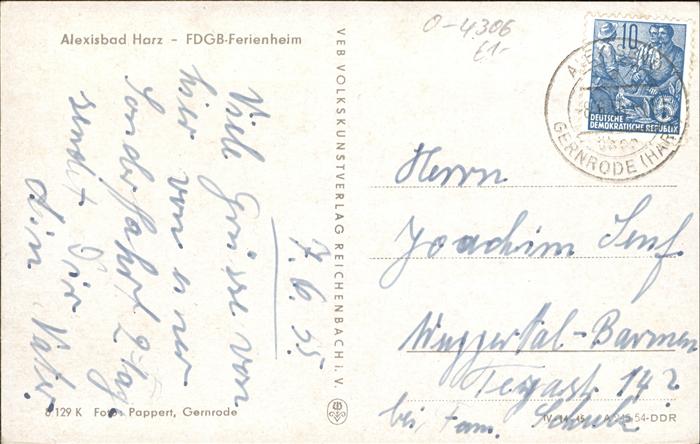 Alexisbad Harz – FDGB-Ferienheim
7. 6. 55.
Viele Grüsse von
hier von
Sonderfahrt 2-Tag.
sendet Dir
dein Vater.
6 129 K Foto: Pappert, Gernrode
VEB VOLKSKUNSTVERLAG REICHENBACH i. V.
0-4306
61-
10
DEUTSCHE
DEMOKRATISCHE REPUBLIK
GERNRODE (HARZ)
Herrn
Joachim Senf.
Wuppertal-Barmen
14
bei Fam.
IV-14-45 54-DDR